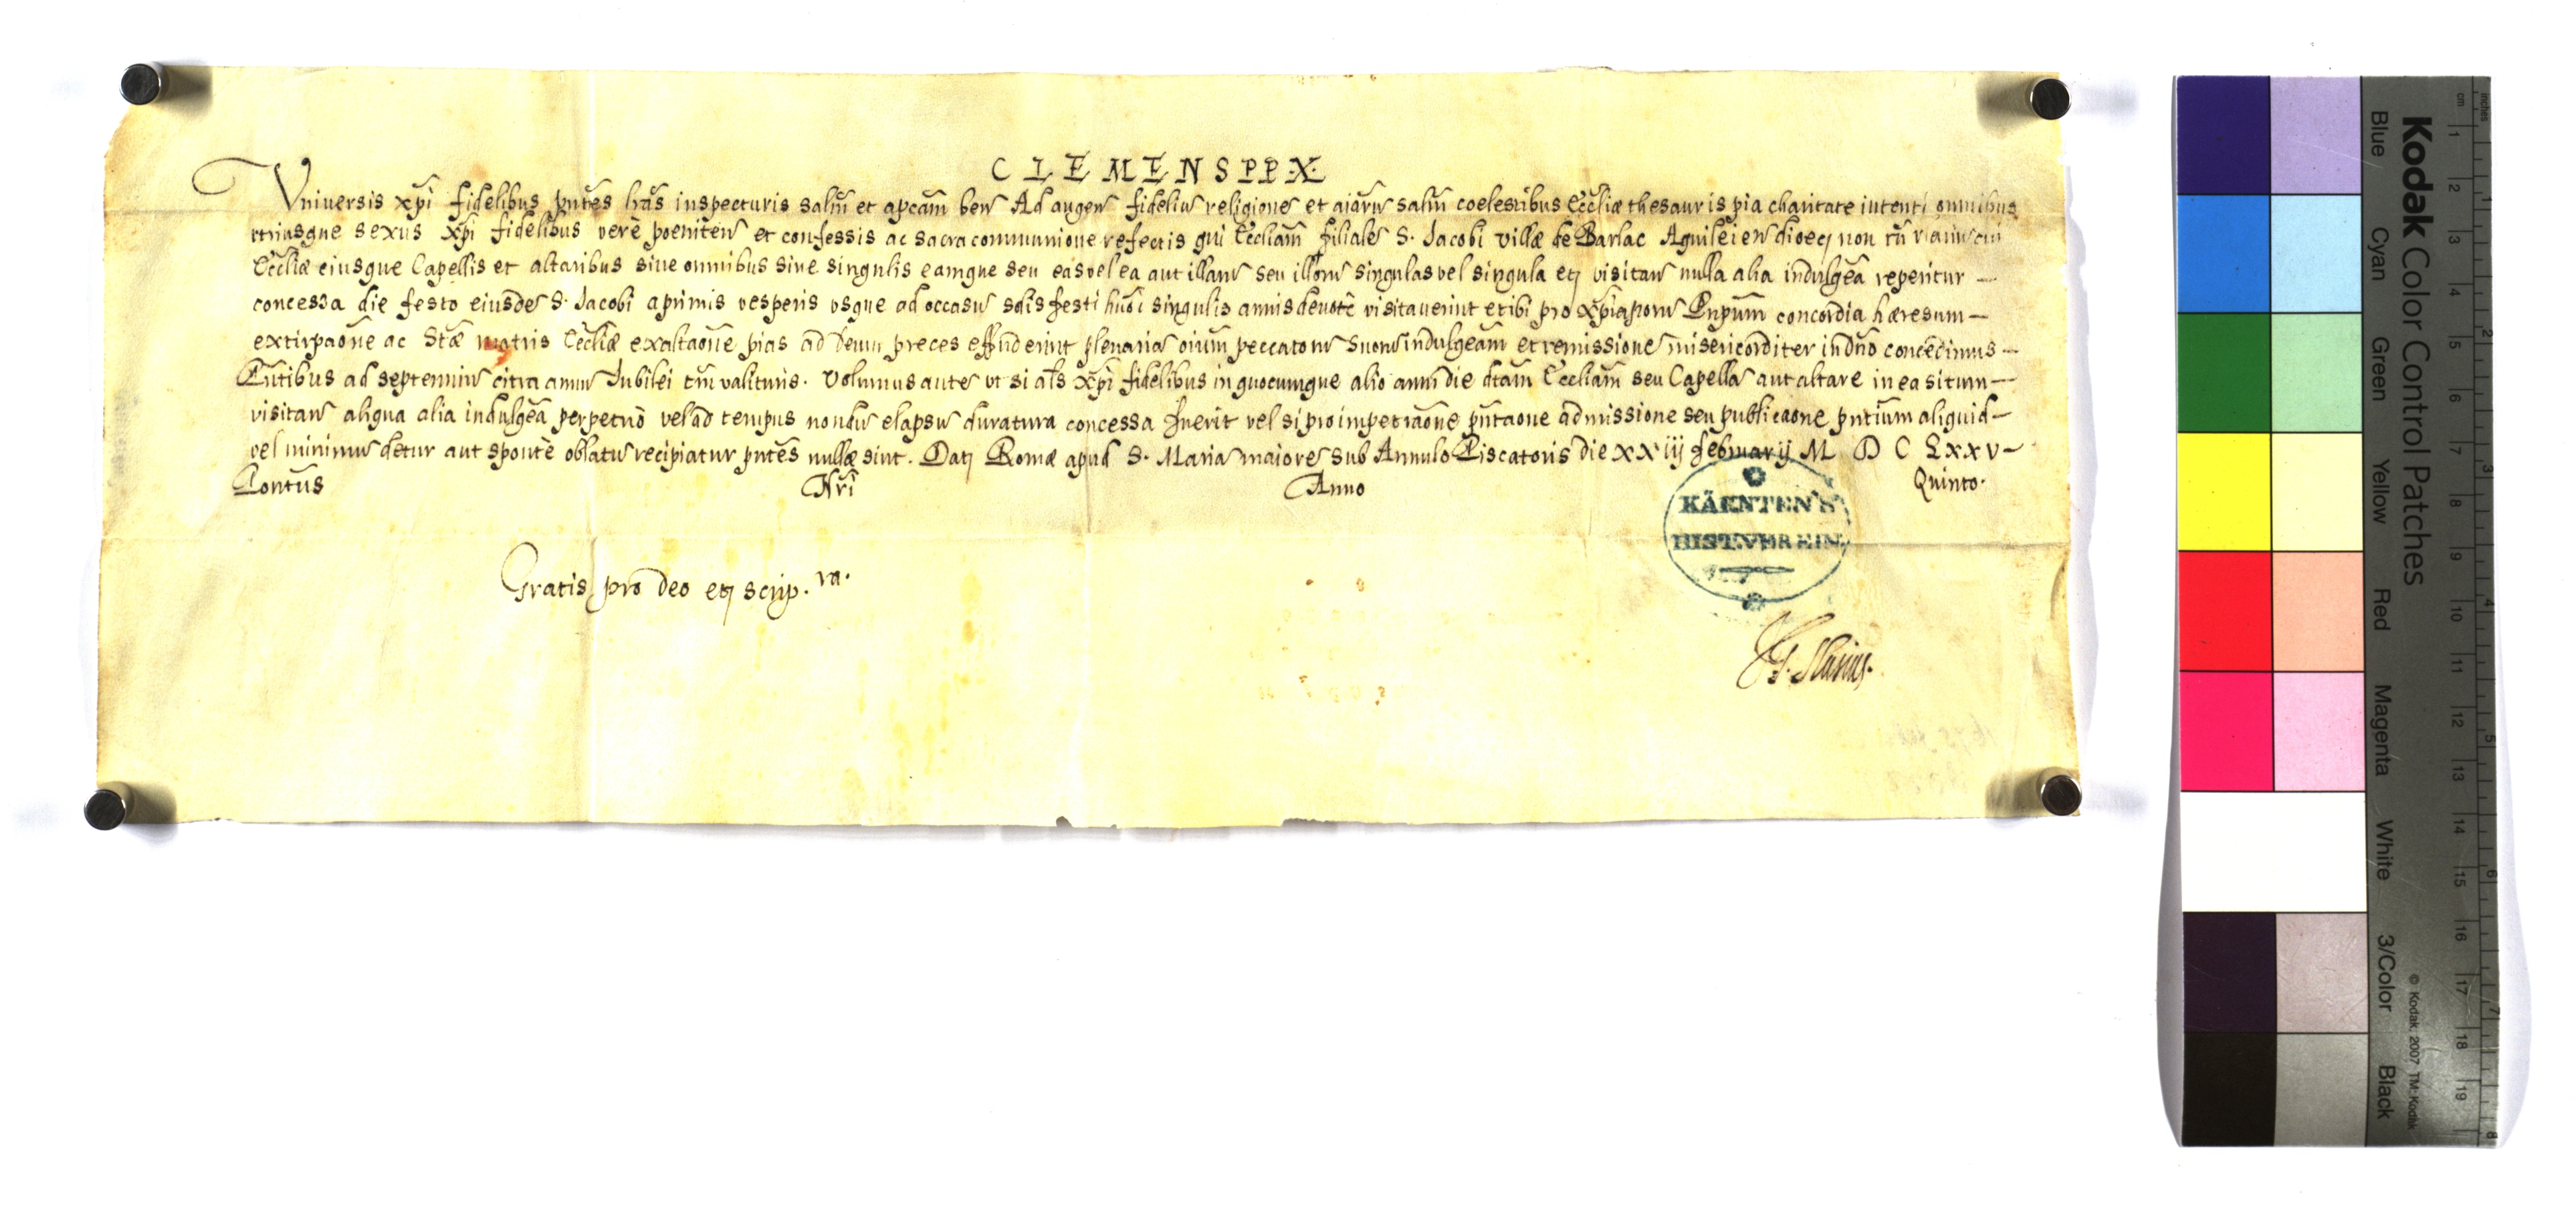 CLEMENS PP. X.
Vniuersis xp̃i fidelibus pñtes lrãs inspecturis salm̃ et apcam̃ ben Ad augen fideliu religione et aiãru salm̃ coelestibus Eccliæ thesauris pia charitate intenti omnibus
vtriusque sexus xp̃i fidelibus verè poeniten et confessis ac sacra communione refectis qui Eccliam̃ filiale S. Jacobi villæ de Barlac Aquileien dioecj non tñ
Eccliæ eiusque Capellis et altaribus siue omnibus siue singulis eamque seu eas vel ea aut illaru seu illoru singulas vel singula etj visitan nulla alia indulgẽa reperitur —
concessa die festo eiusde S. Jacobi a primis vesperis vsque ad occasu solis festi huõi singulis annis deuotè visitauerint et ibi pro xp̃iaporu Pnpum̃ concordia hæresum —
extirpaõne ac Stæ matris Eccliæ exaltaõne pias ad deum preces effuderint plenaria oium̃ peccatoru suoru indulgeam̃ et remissione misericorditer in dño concedimus —
Pñtibus ad septenniu citra annu Jubilei tm̃ valituris. Volumus aute vt si als̃ xp̃i fidelibus in quocumque alio anni die dtam̃ Eccliam̃ seu Capella aut altare in ea situm —
visitan aliqua alia indulgẽa perpetuò vel ad tempus nondu elapsu duratura concessa fuerit vel si pro impetraõne pñtaõne admissione seu publicaõne pntium̃ aliquid —
vel minimu detur aut spontè oblatu recipiatur pñtes nullæ sint. Datj Romæ apud S. Maria maiore sub Annulo Piscatoris die XXiij februarij M D C LXXV —
Pontus̃ Nrĩ Anno Quinto.
KÄRNTEN'S
HIST. VEREIN
Gratis pro deo etj scrip.ra.
J. Slusius.
Kodak Color Control Patches
Blue Cyan Green Yellow Red Magenta White 3/Color Black
© Kodak, 2007 TM: Kodak
cm 1 2 3 4 5 6 7 8 9 10 11 12 13 14 15 16 17 18 19
inches 1 2 3 4 5 6 7 8